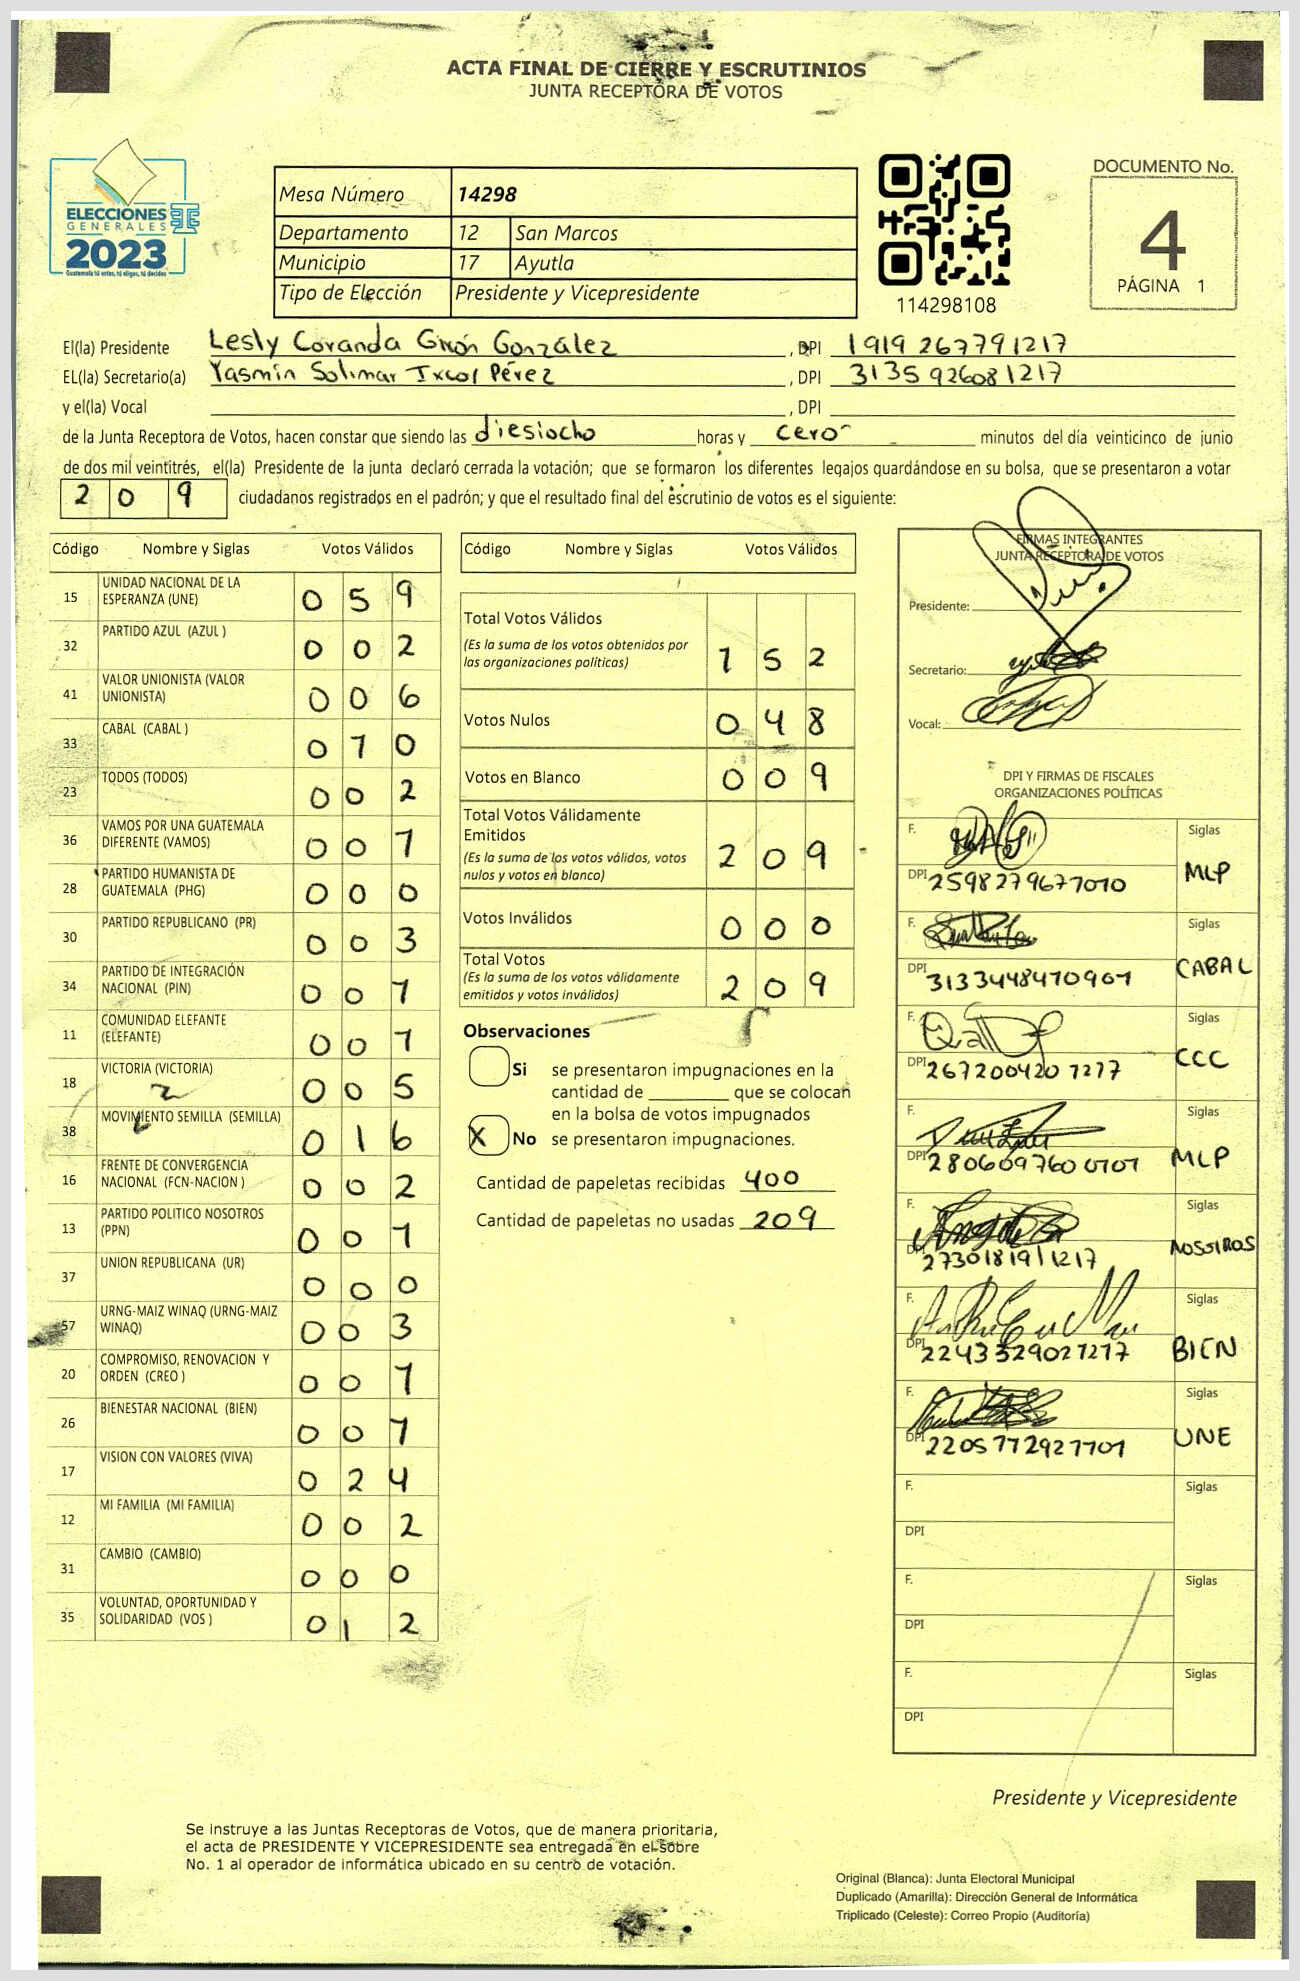 ACTA FINAL DE CIERRE Y ESCRUTINIOS
JUNTA RECEPTORA DE VOTOS
ELECCIONES
GENERALES
2023
Guatemala tú votas, tú eliges, tú decides
Mesa Número 14298
Departamento 12 San Marcos
Municipio 17 Ayutla
Tipo de Elección Presidente y Vicepresidente
114298108
DOCUMENTO No.
4
PÁGINA 1
El(la) Presidente Lesly Coranda Girón González , DPI 1919 267791217
EL(la) Secretario(a) Yasmín Solimar Ixcol Pérez , DPI 3135 926081217
y el(la) Vocal , DPI
de la Junta Receptora de Votos, hacen constar que siendo las diesiocho horas y cero minutos del día veinticinco de junio
de dos mil veintitrés, el(la) Presidente de la junta declaró cerrada la votación; que se formaron los diferentes legajos guardándose en su bolsa, que se presentaron a votar
2 0 9 ciudadanos registrados en el padrón; y que el resultado final del escrutinio de votos es el siguiente:
Código Nombre y Siglas Votos Válidos
15 UNIDAD NACIONAL DE LA ESPERANZA (UNE) 0 5 9
32 PARTIDO AZUL (AZUL ) 0 0 2
41 VALOR UNIONISTA (VALOR UNIONISTA) 0 0 6
33 CABAL (CABAL ) 0 1 0
23 TODOS (TODOS) 0 0 2
36 VAMOS POR UNA GUATEMALA DIFERENTE (VAMOS) 0 0 1
28 PARTIDO HUMANISTA DE GUATEMALA (PHG) 0 0 0
30 PARTIDO REPUBLICANO (PR) 0 0 3
34 PARTIDO DE INTEGRACIÓN NACIONAL (PIN) 0 0 1
11 COMUNIDAD ELEFANTE (ELEFANTE) 0 0 1
18 VICTORIA (VICTORIA) 0 0 5
38 MOVIMIENTO SEMILLA (SEMILLA) 0 1 6
16 FRENTE DE CONVERGENCIA NACIONAL (FCN-NACION ) 0 0 2
13 PARTIDO POLITICO NOSOTROS (PPN) 0 0 1
37 UNION REPUBLICANA (UR) 0 0 0
57 URNG-MAIZ WINAQ (URNG-MAIZ WINAQ) 0 0 3
20 COMPROMISO, RENOVACION Y ORDEN (CREO ) 0 0 1
26 BIENESTAR NACIONAL (BIEN) 0 0 1
17 VISION CON VALORES (VIVA) 0 2 4
12 MI FAMILIA (MI FAMILIA) 0 0 2
31 CAMBIO (CAMBIO) 0 0 0
35 VOLUNTAD, OPORTUNIDAD Y SOLIDARIDAD (VOS ) 0 1 2
Código Nombre y Siglas Votos Válidos
Total Votos Válidos
(Es la suma de los votos obtenidos por
las organizaciones políticas) 1 5 2
Votos Nulos 0 4 8
Votos en Blanco 0 0 9
Total Votos Válidamente
Emitidos
(Es la suma de los votos válidos, votos
nulos y votos en blanco) 2 0 9
Votos Inválidos 0 0 0
Total Votos
(Es la suma de los votos válidamente
emitidos y votos inválidos) 2 0 9
Observaciones
Si se presentaron impugnaciones en la
cantidad de ________ que se colocan
en la bolsa de votos impugnados
X No se presentaron impugnaciones.
Cantidad de papeletas recibidas 400
Cantidad de papeletas no usadas 209
FIRMAS INTEGRANTES
JUNTA RECEPTORA DE VOTOS
Presidente:
Secretario:
Vocal:
DPI Y FIRMAS DE FISCALES
ORGANIZACIONES POLÍTICAS
F. Siglas
DPI 2598279677010 MLP
F. Siglas
DPI 3133448470901 CABAL
F. Siglas
DPI 2672004201217 CCC
F. Siglas
DPI 2806097600101 MLP
F. Siglas
DPI 2730181911217 NOSOTROS
F. Siglas
DPI 2243329021217 BIEN
F. Siglas
DPI 2205772927701 UNE
F. Siglas
DPI
F. Siglas
DPI
F. Siglas
DPI
Presidente y Vicepresidente
Se instruye a las Juntas Receptoras de Votos, que de manera prioritaria,
el acta de PRESIDENTE Y VICEPRESIDENTE sea entregada en el sobre
No. 1 al operador de informática ubicado en su centro de votación.
Original (Blanca): Junta Electoral Municipal
Duplicado (Amarilla): Dirección General de Informática
Triplicado (Celeste): Correo Propio (Auditoría)